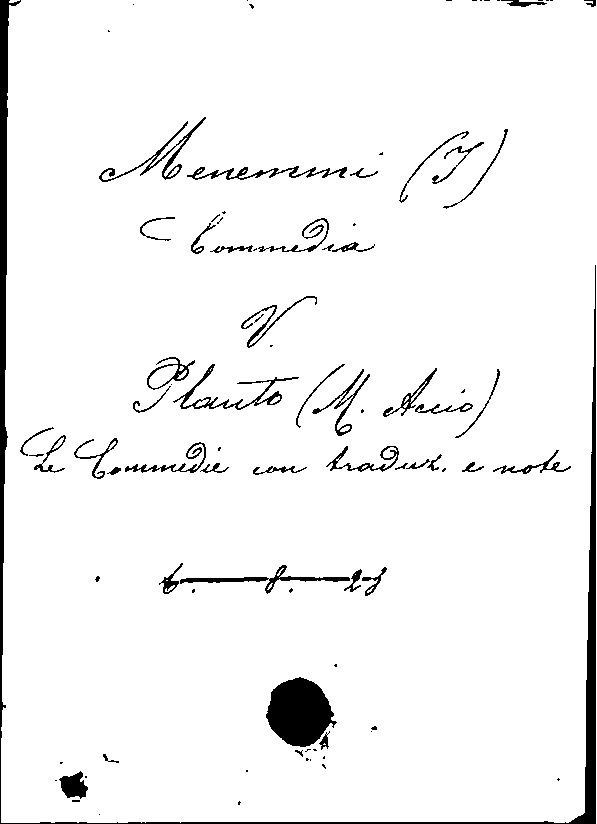 Menemmi (I)
Commedia
V.
Plauto (M. Accio)
Le Commedie con traduz. e note
6. 8. 23